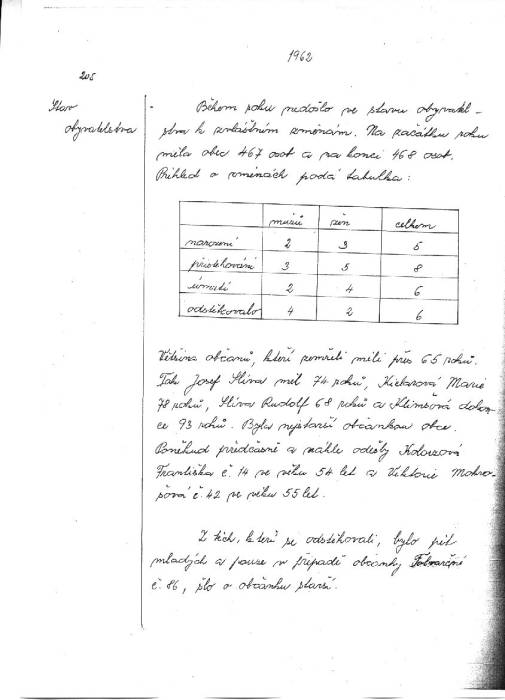 1962
205
Stav
obyvatelstva
Během roku nedošlo ve stavu obyvatel-
stva k zvláštním změnám. Na začátku roku
měla obec 467 osob a na konci 468 osob.
Přehled o změnách podá tabulka:
mužů žen celkem
narození 2 3 5
přistěhování 3 5 8
úmrtí 2 4 6
odstěhovalo 4 2 6
Většina občanů, kteří zemřeli měli přes 65 roků.
Tak Josef Slíva měl 74 roků, Marie
78 roků, Slíva Rudolf 68 roků a Klimšová dokon-
ce 93 roků. Byla nejstarší občankou obce.
Poněkud předčasně a náhle odešly
Františka č. 14 ve věku 54 let a Viktorie Mokro-
šová č. 42 ve věku 55 let.
Z těch, kteří se odstěhovali, bylo pět
mladých a pouze v případě občanky
č. 86, šlo o občanku starší.